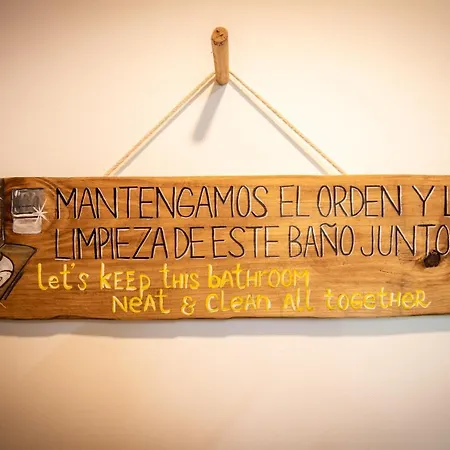 MANTENGAMOS EL ORDEN Y L
LIMPIEZA DE ESTE BAÑO JUNTO
Let's KEEP THIS BATHROOM
NEAT & CLEAN ALL TOGETHER